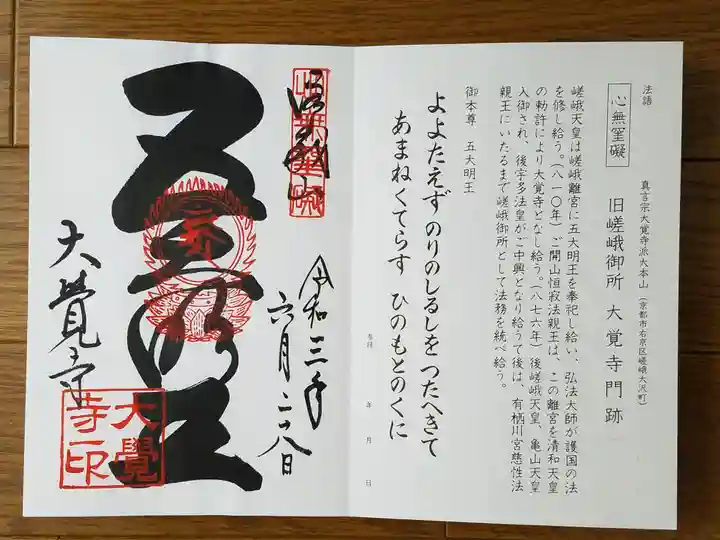 法語
心無罣礙
真言宗大覚寺派大本山
(京都市右京区嵯峨大沢町)
旧嵯峨御所 大覚寺門跡
嵯峨天皇は嵯峨離宮に五大明王を奉祀し給い、弘法大師が護国の法
を修し給う。(八一〇年)ご開山恒寂法親王は、この離宮を清和天皇
の勅許により大覚寺となし給う。(八七六年)後嵯峨天皇、亀山天皇
入御され、後宇多法皇がご中興となり給うて後は、有栖川宮慈性法
親王にいたるまで嵯峨御所として法務を統べ給う。
御本尊 五大明王
よよたえず のりのしるしを つたへきて
あまねくてらす ひのもとのくに
参拝 年 月 日
令和三年
六月二八日
五大明王
大覺寺
大覺
寺印